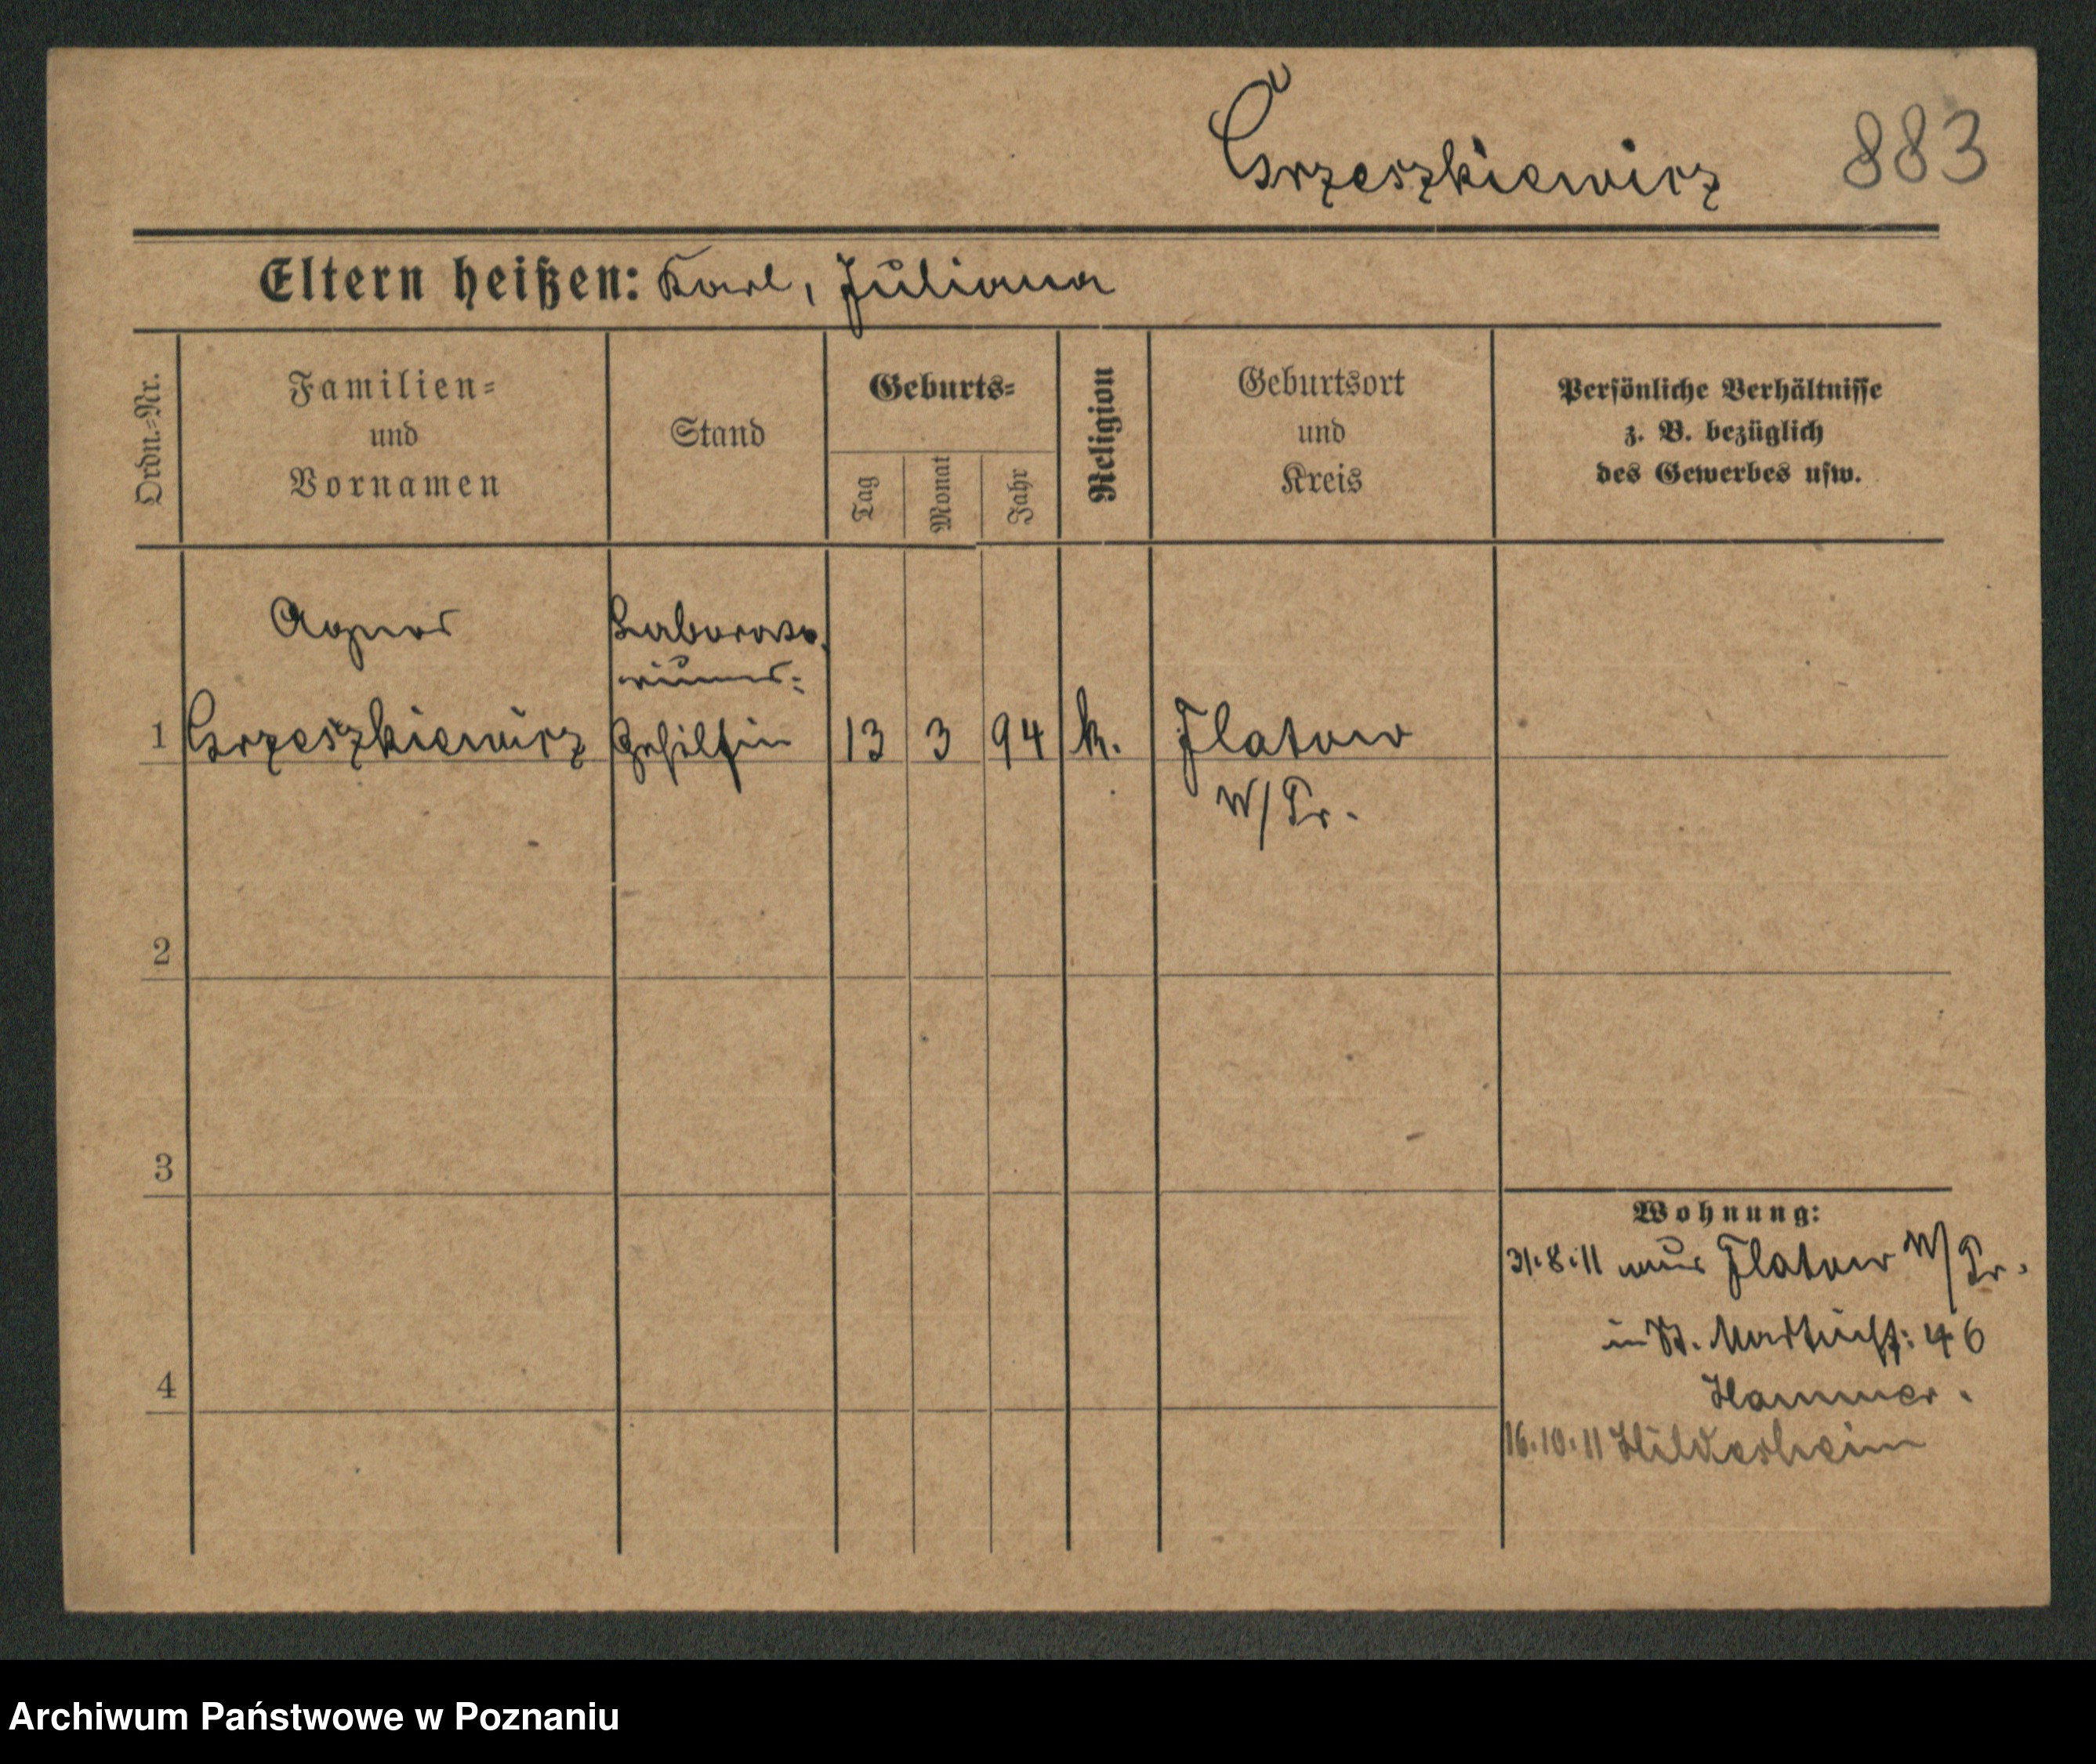 Grzeszkiewicz 883
Eltern heißen: Karl, Juliana
Ordn.=Nr.
Familien=
und
Vornamen
Stand
Geburts=
Tag
Monat
Jahr
Religion
Geburtsort
und
Kreis
Persönliche Verhältnisse
z. B. bezüglich
des Gewerbes usw.
Agnes Laborato
riums=
1 Grzeszkiewicz Gehilfin 13 3 94 k. Flatow
W/Pr.
2
3
4
Wohnung:
31.8.11 aus Flatow W/Pr.
in St. Martinstr: 46
Hammer.
16.10.11 Hildesheim
Archiwum Państwowe w Poznaniu